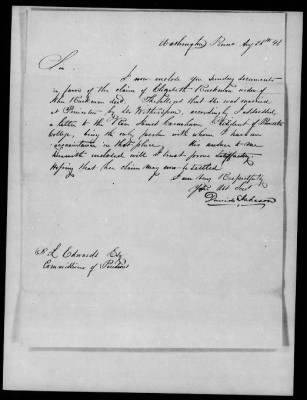 Washington Penna Aug 28th 48
Sir
I now inclose you sundry documents
in favor of the claim of Elizabeth widow of
John decd. She alleges that she was married
at Princeton by Dr Witherspoon, accordingly I addressed
a letter to the Rev James Carnahan, President of Princeton
College, being the only person with whom I have an
acquaintance in that place. His answer to me
herewith inclosed will I trust prove satisfactory.
Hoping that her claim may now be settled
I am Very Respectfully
Your Obt Servt
David Acheson
J. L. Edwards Esq
Commissioner of Pensions